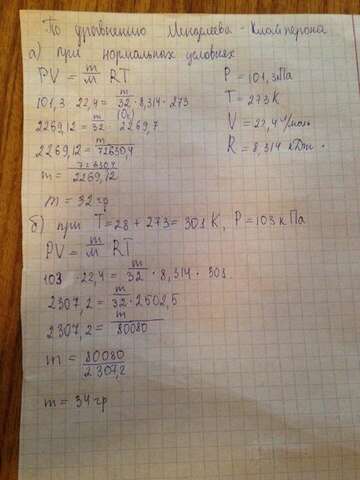 По уравнению Менделеева-Клайперона
а) при нормальных условиях
PV = m/M RT
P = 101,3кПа
101,3 · 22,4 = m/32 · 8,314 · 273
(O₂)
T = 273 K
2269,12 = m/32 · 2269,7
V = 22,4 л/моль
2269,12 = m/72630,4
R = 8,314 кДж
m = 72630,4/2269,12
m = 32 гр
б) при T = 28 + 273 = 301 K, P = 103 кПа
PV = m/M RT
103 · 22,4 = m/32 · 8,314 · 301
2307,2 = m/32 · 2502,5
2307,2 = m/80080
m = 80080/2307,2
m = 34 гр